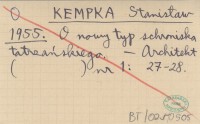 O KEMPKA Stanisław
1955. O nowy typ schroniska
tatrzańskiego. — Architekt
( ) nr 1: 27-28.